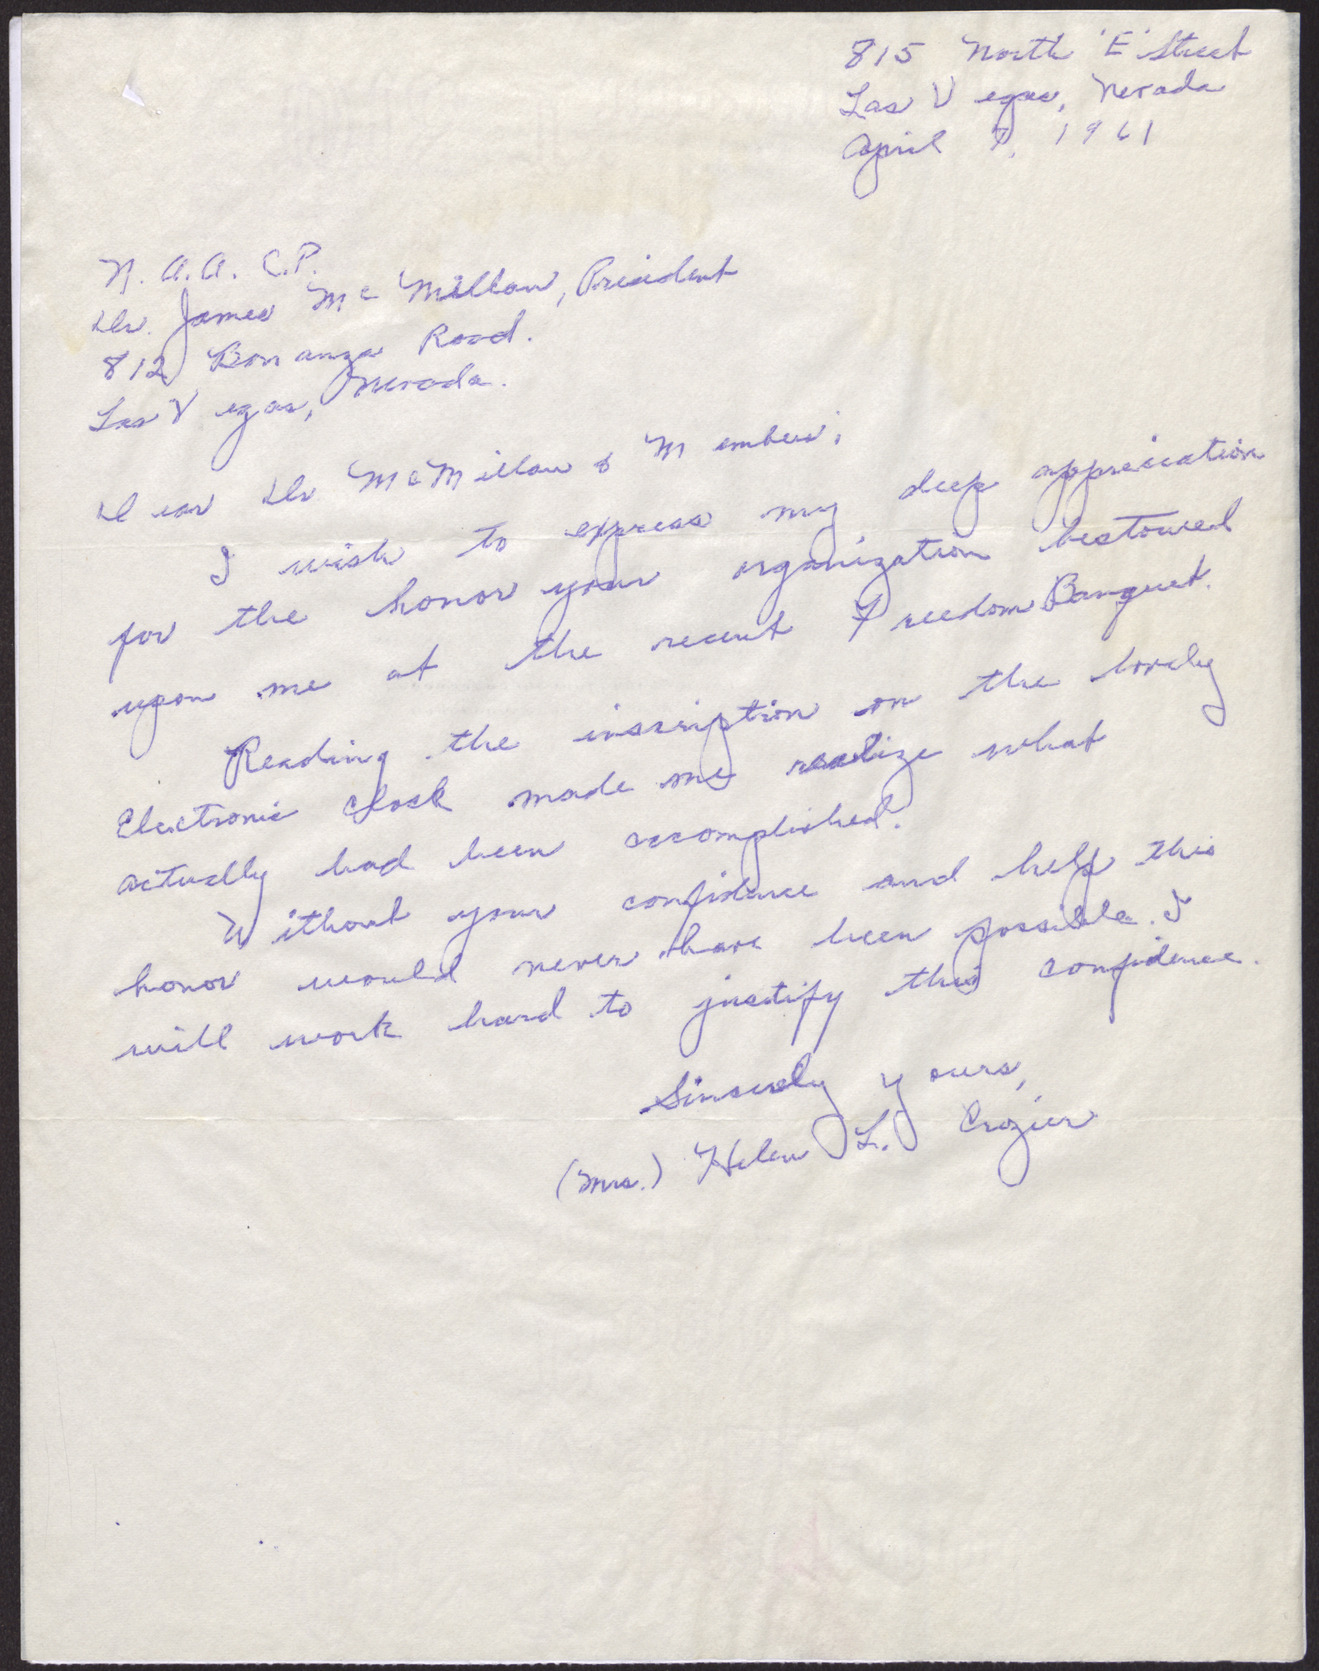 815 North 'E' Street
Las Vegas, Nevada
April 7, 1961
N.A.A.C.P.
Dr. James McMillan, President
812 Bonanza Road.
Las Vegas, Nevada.
Dear Dr McMillan & Members;
I wish to express my deep appreciation
for the honor your organization bestowed
upon me at the recent Freedom Banquet.
Reading the inscription on the lovely
electronic clock made me realize what
actually had been accomplished.
Without your confidence and help this
honor would never have been possible. I
will work hard to justify this confidence.
Sincerely yours,
(Mrs.) Helen L. Crozier